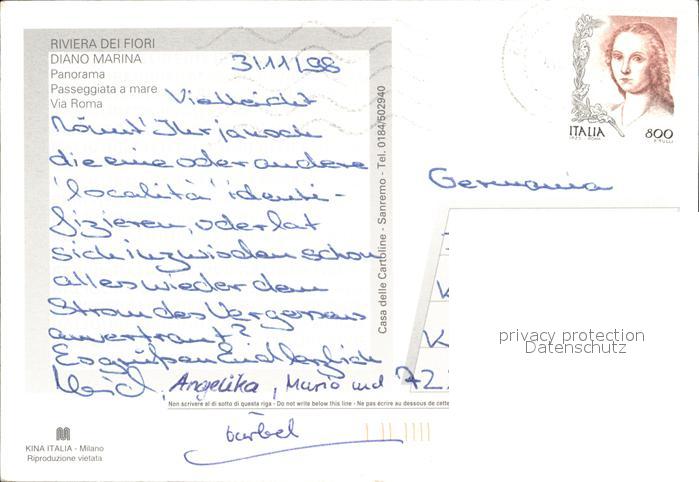 RIVIERA DEI FIORI
DIANO MARINA
Panorama
Passeggiata a mare
Via Roma
31/11/98
Vielleicht
könnt' Ihr ja noch
die eine oder andere
'località' identi-
fizieren, oder hat
sich inzwischen schon
alles wieder dem
Strom des Vergessens
anvertraut?
Es grüßen Euch herzlich
Angelika, Mario und
Bärbel
Casa delle Cartoline - Sanremo - Tel. 0184/502940
ITALIA 800
Germania
K
K
72
privacy protection
Datenschutz
Non scrivere al di sotto di questa riga - Do not write below this line - Ne pas écrire au dessous de cette
KINA ITALIA - Milano
Riproduzione vietata